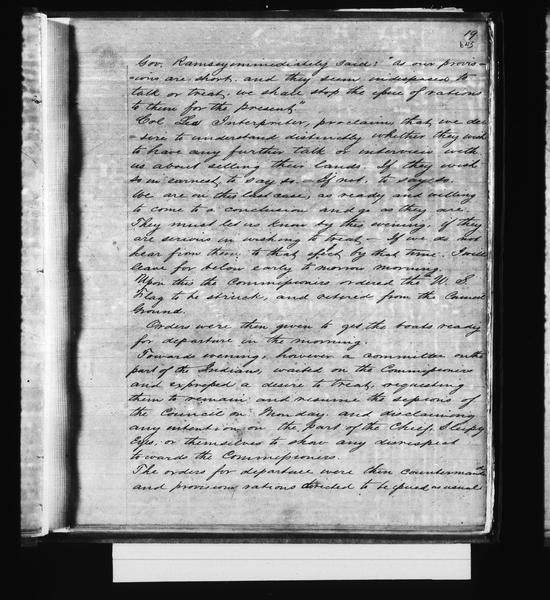 19
Gov. Ramsey immediately said: "As our provis-
ions are short, and they seem indisposed to
talk or treat, we shall stop the issue of rations
to them for the present."
Col Lea Interpreter, proclaim that we de-
-sire to understand distinctly whether they wish
to have any further talk or interview with
us about selling their lands. If they wish
so in earnest, to say so. - If not, to say so.
We are in this last case, as ready and willing
to come to a conclusion and go as they are.
They must let us know by this evening, if they
are serious in wishing to treat, - If we do not
hear from them, to that effect by that time. I will
leave for below early to morrow morning.
Upon this the Commissioners ordered the U. S.
Flag to be struck, and retired from the Council
Ground.
Orders were then given to get the boats ready
for departure in the morning.
Towards evening, however a committee on the
part of the Indians, waited on the Commissioners
and expressed a desire to treat, requesting
them to remain and resume the sessions of
the Council on Monday. and disclaiming
any intention on the part of the Chief Sleepy
Eyes, or themselves to show any disrespect
towards the Commissioners.
The orders for departure were then countermanded
and provision rations directed to be issued as usual